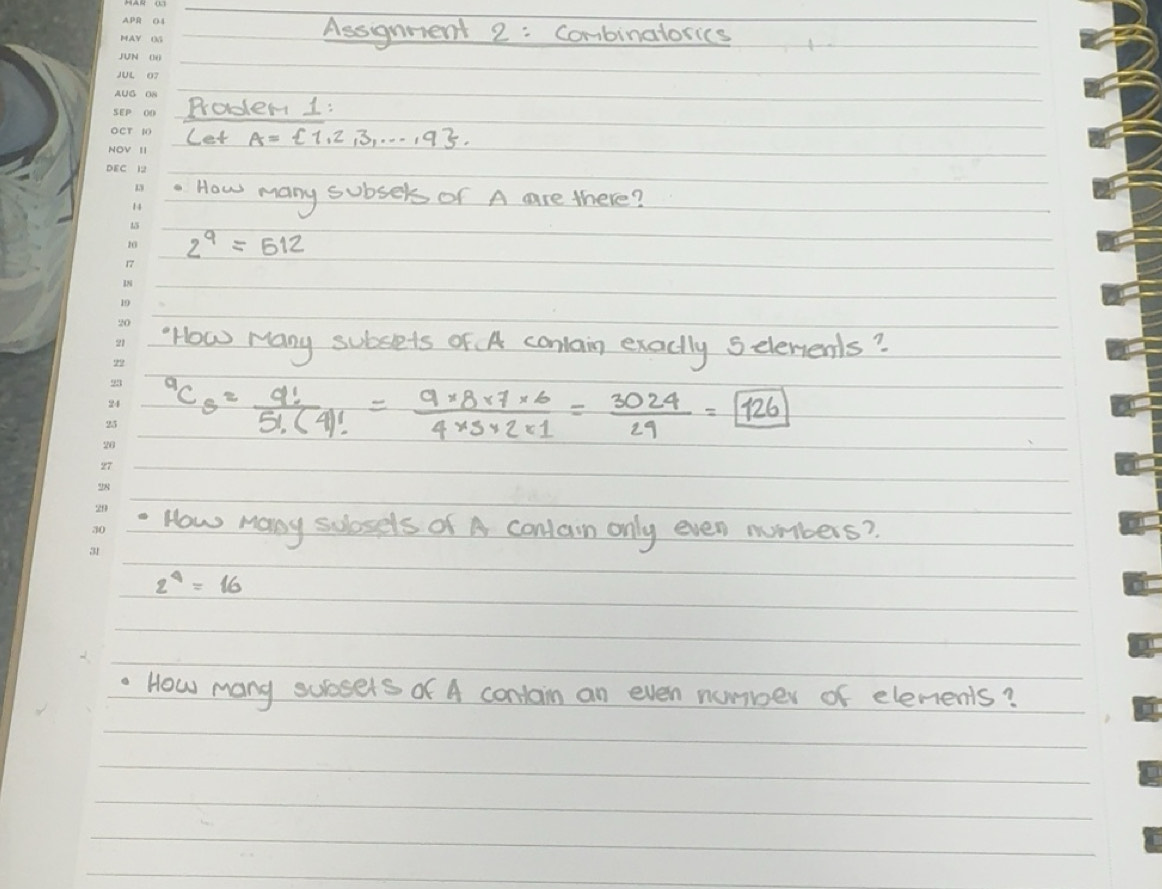 MAR 03
APR 04
MAY 05
JUN 06
JUL 07
AUG 08
SEP 09
OCT 10
NOV 11
DEC 12
13
14
15
16
17
18
19
20
21
22
23
24
25
26
27
28
29
30
31
Assignment 2: Combinatorics
Problem 1:
Let A = {1,2,3,...,9}.
• How many subsets of A are there?
2⁹ = 512
• How many subsets of A contain exactly 5 elements?
⁹C₅ = 9!/5!(4)! = 9×8×7×6/4×3×2×1 = 3024/24 = 126
• How many subsets of A contain only even numbers?
2⁴ = 16
• How many subsets of A contain an even number of elements?